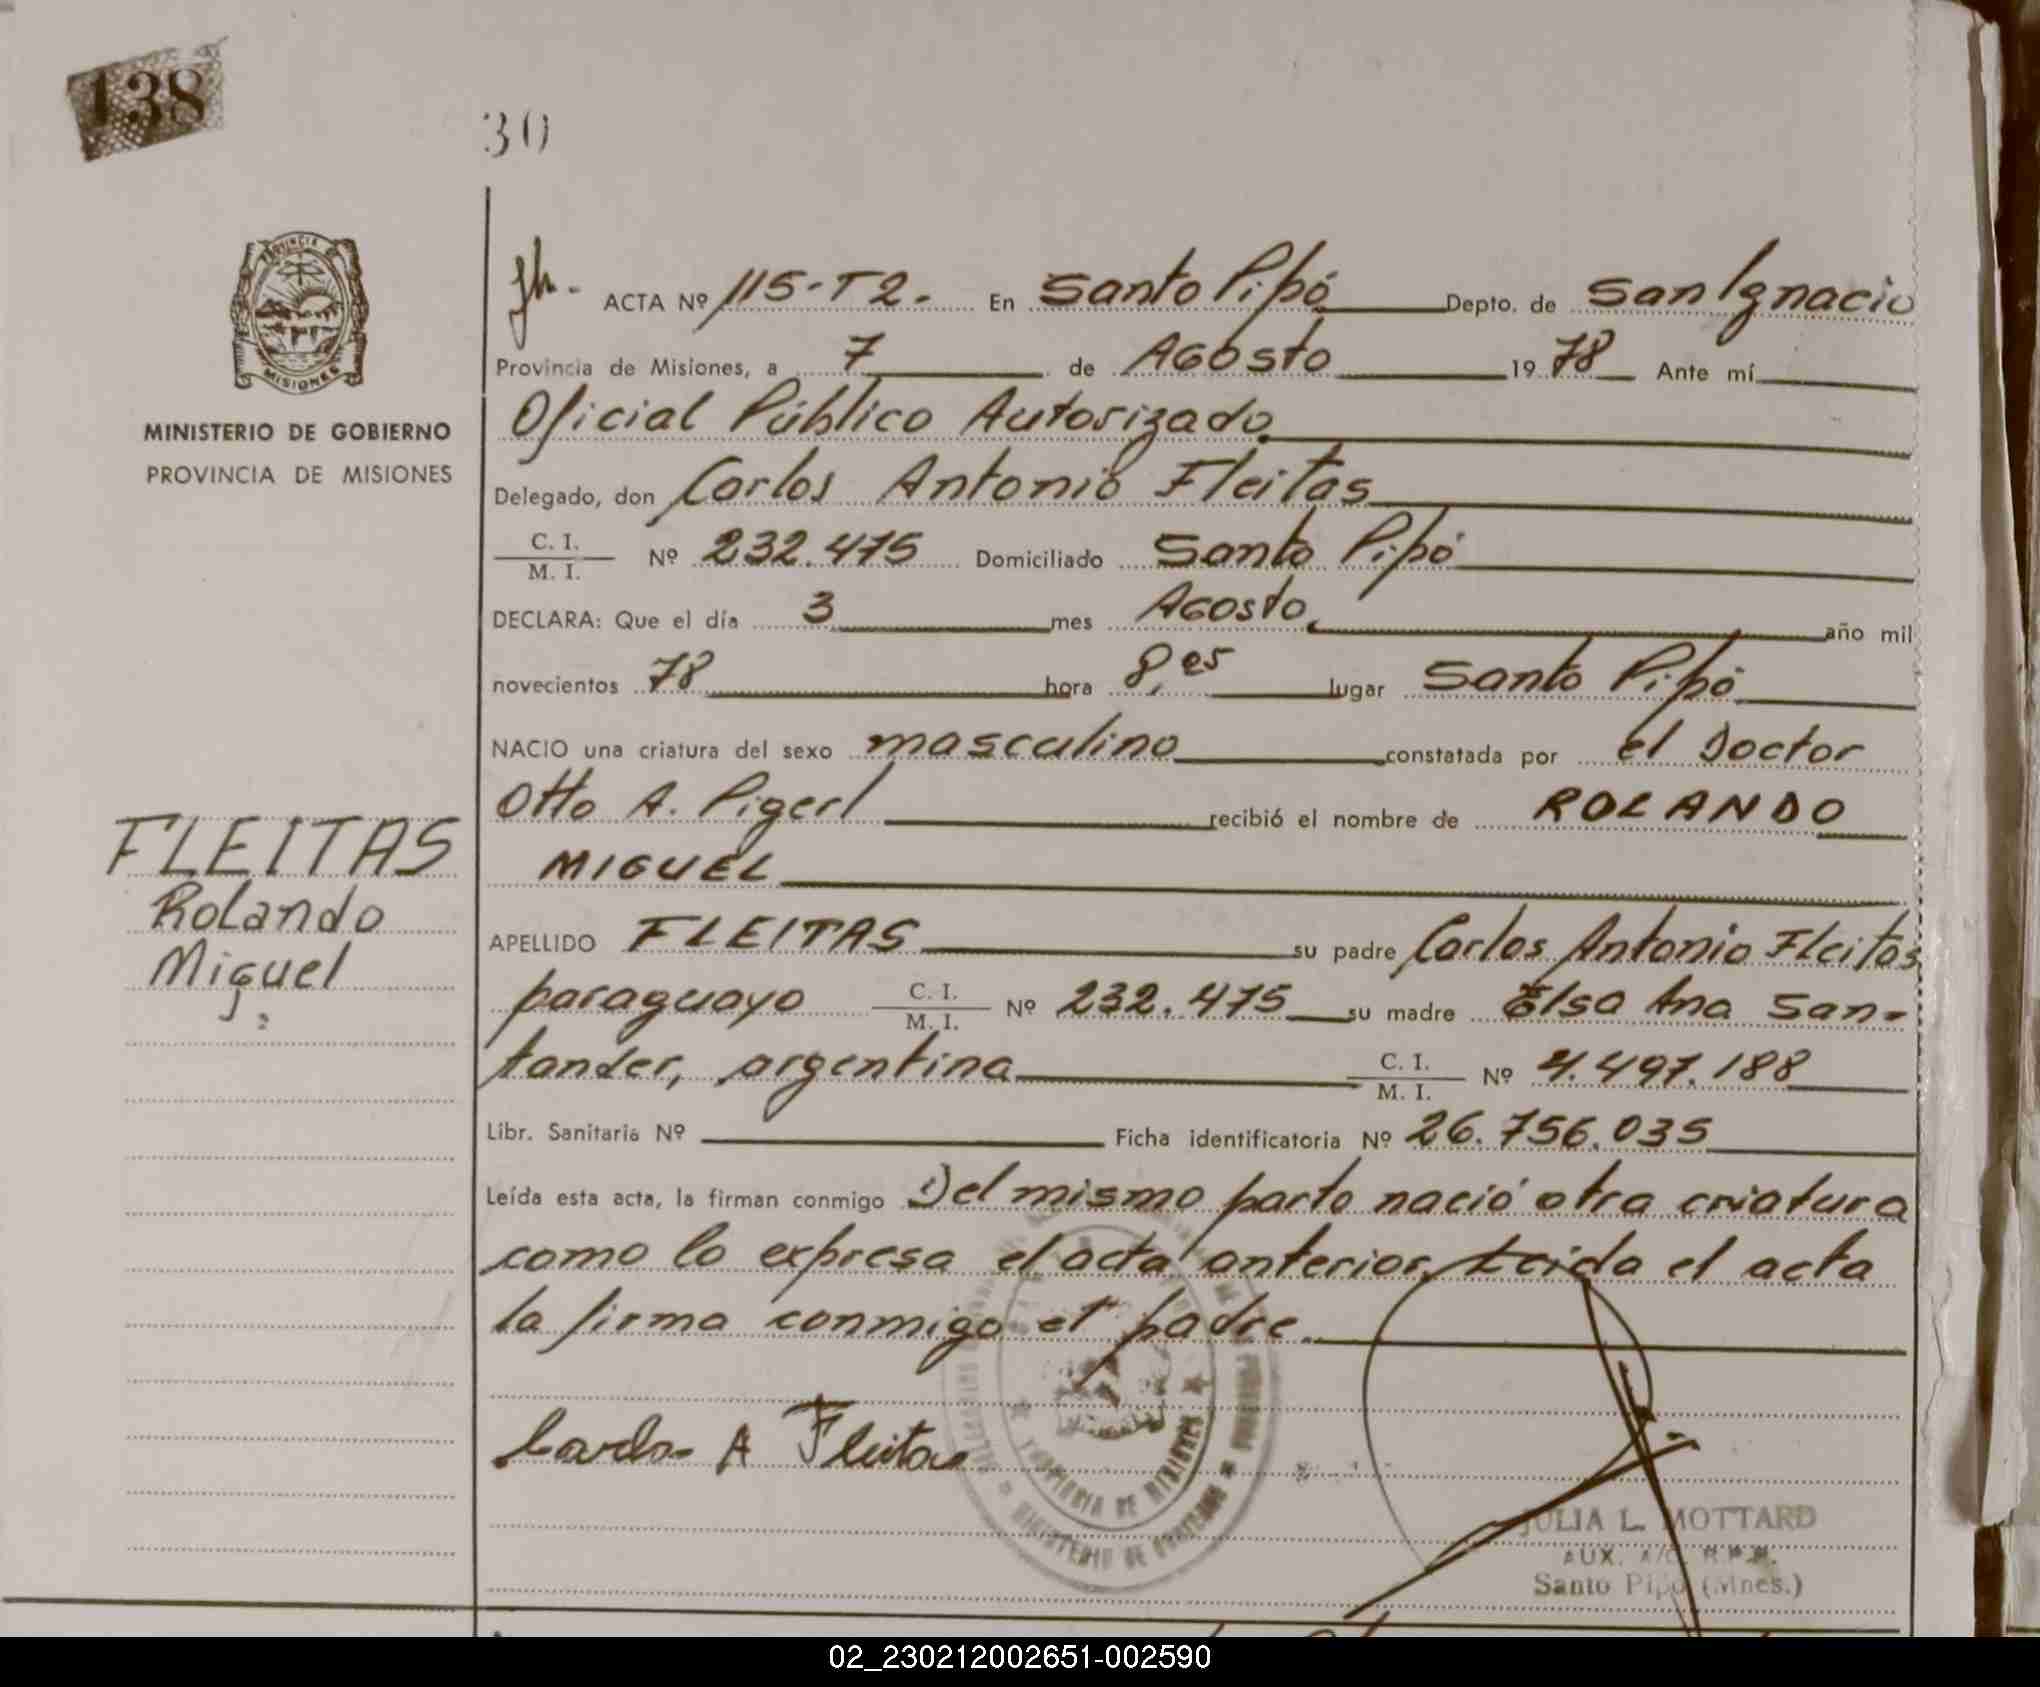 138
30
PROVINCIA DE
MISIONES
MINISTERIO DE GOBIERNO
PROVINCIA DE MISIONES
ACTA Nº 115-T2. En Santo Pipó Depto. de San Ignacio
Provincia de Misiones, a 7 de Agosto 19 78 Ante mí
Oficial Público Autorizado
Delegado, don Carlos Antonio Fleitas
C. I.
M. I. Nº 232.475 Domiciliado Santo Pipó
DECLARA: Que el día 3 mes Agosto. año mil
novecientos 78 hora 8,05 lugar Santo Pipó
NACIO una criatura del sexo masculino constatada por el Doctor
Otto A. Pigerl recibió el nombre de ROLANDO
MIGUEL
FLEITAS
Rolando
Miguel
APELLIDO FLEITAS su padre Carlos Antonio Fleitas
paraguayo C. I.
M. I. Nº 232.475 su madre Elsa Ana San-
tander, argentina C. I.
M. I. Nº 4.497.188
Libr. Sanitaria Nº Ficha identificatoria Nº 26.756.035
Leída esta acta, la firman conmigo Del mismo parto nació otra criatura
como lo expresa el acta anterior. Leida el acta
la firma conmigo el padre.
Carlos A Fleitas
PROVINCIA DE MISIONES
MINISTERIO DE GOBIERNO
JULIA L. MOTTARD
AUX. A/C. R.P.P.
Santo Pipó (Mnes.)
02_230212002651-002590